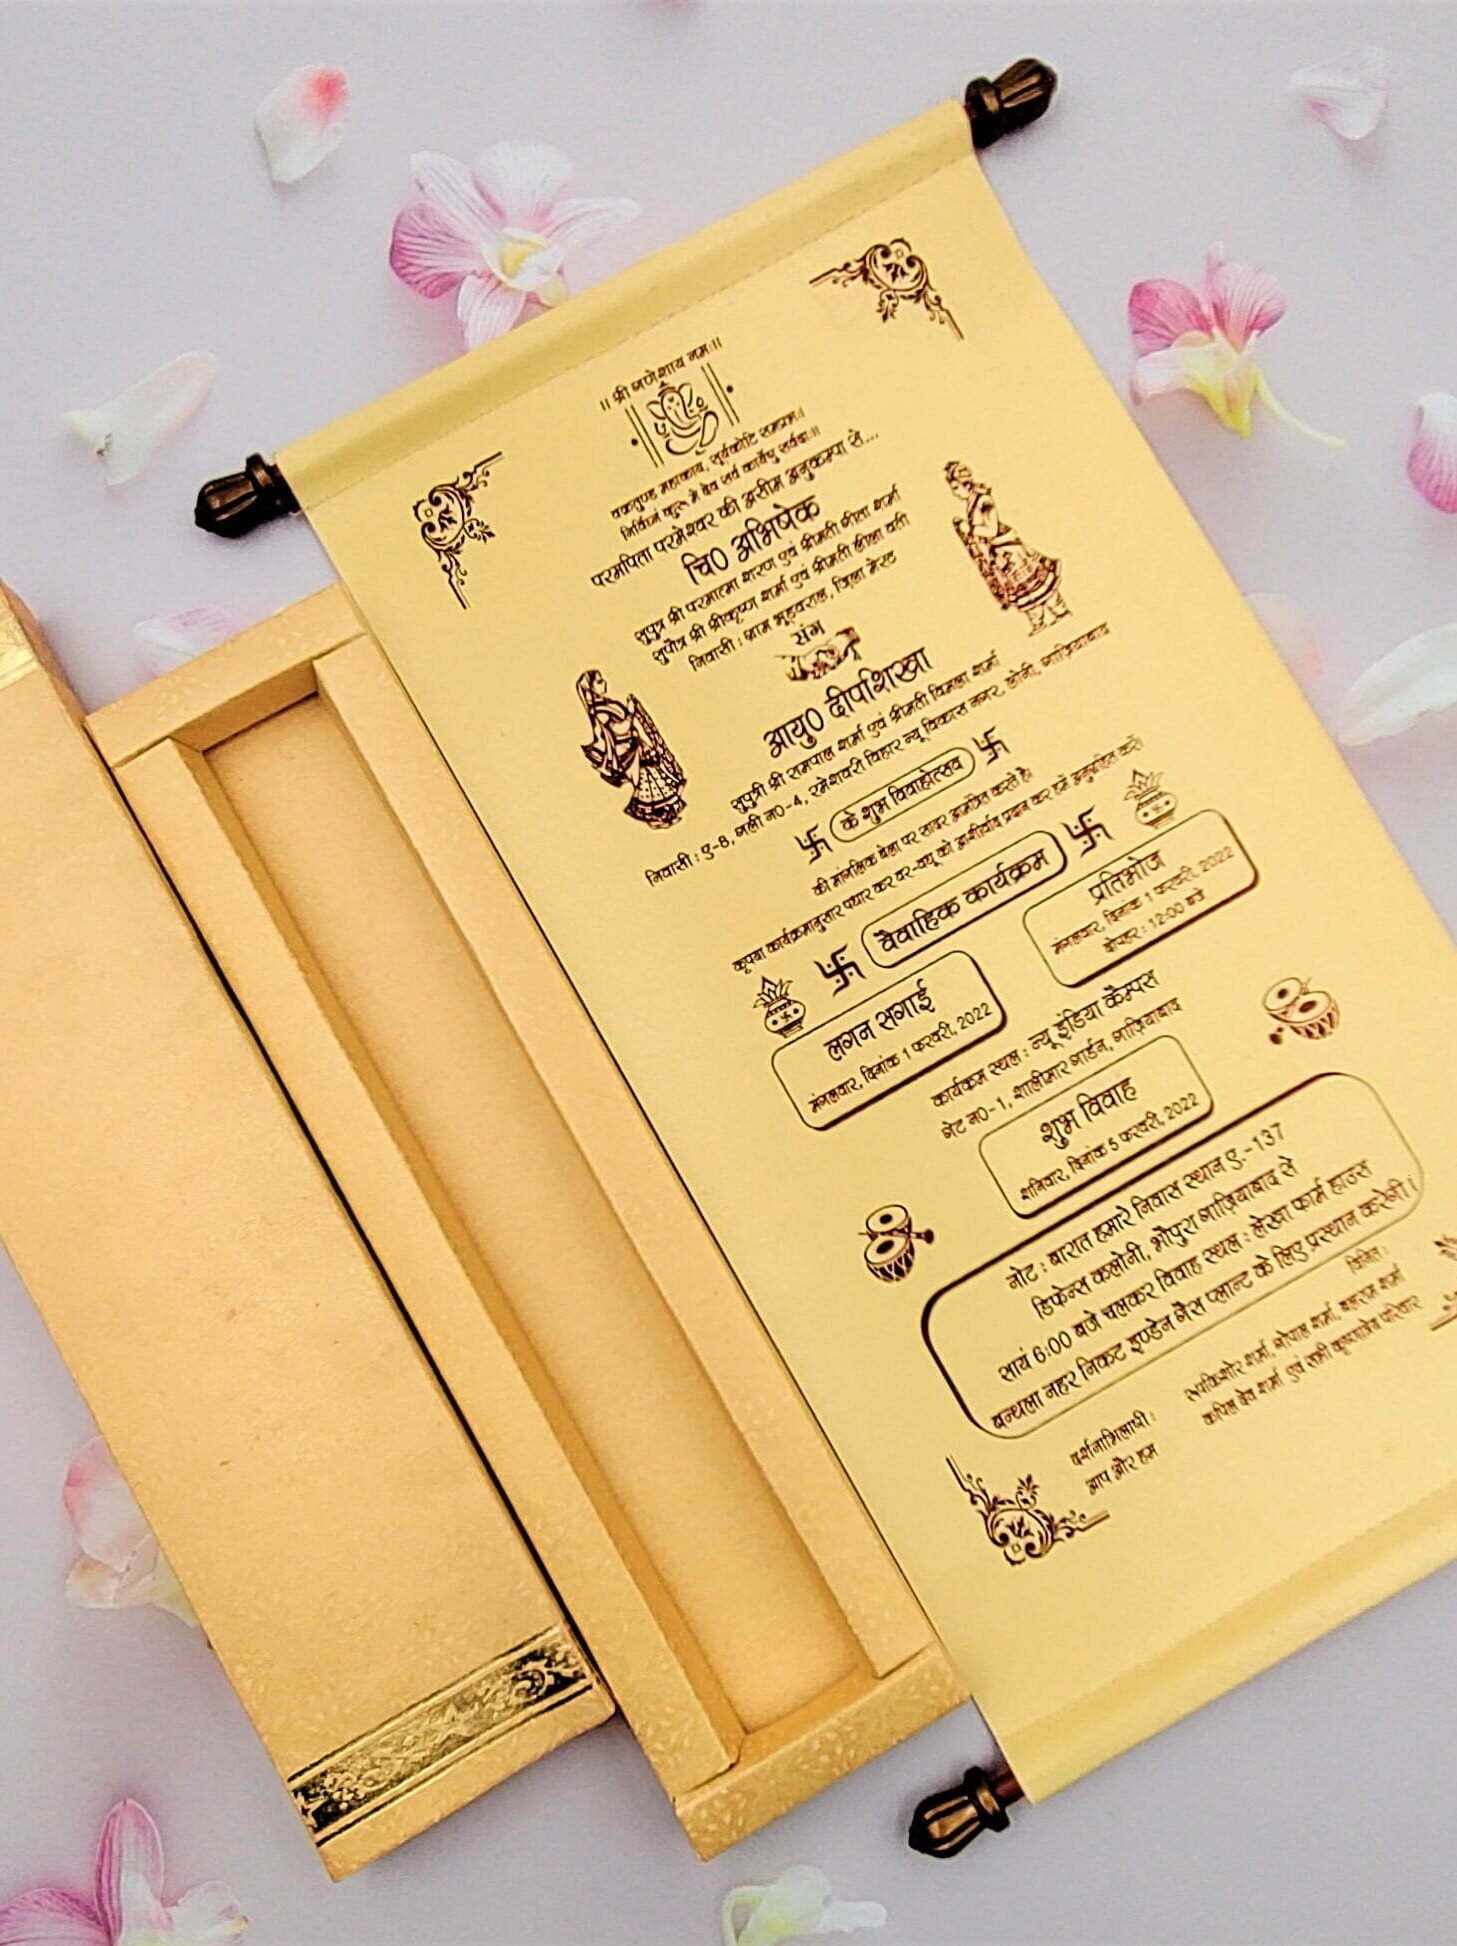 ॥ श्री गणेशाय नमः॥
वक्रतुण्ड महाकाय, सूर्यकोटि समप्रभ।
निर्विघ्नं कुरू मे देव सर्व कार्येषु सर्वदा॥
परमपिता परमेश्वर की असीम अनुकम्पा से...
चि0 अभिषेक
सुपुत्र श्री परमात्मा शरण एवं श्रीमती गीता शर्मा
सुपौत्र श्री श्रीकृष्ण शर्मा एवं श्रीमती लीला वती
निवासी : ग्राम भूडवराल, जिला मेरठ
संग
आयु0 दीपशिखा
सुपुत्री श्री रामपाल शर्मा एवं श्रीमती विमला शर्मा
निवासी : ए-8, गली न0-4, रमेशवरी विहार न्यू विकास नगर, लोनी, गाज़ियाबाद
के शुभ विवाहोत्सव
की मांगलिक बेला पर सादर आमंत्रित करते है।
कृपया कार्यक्रमानुसार पधार कर वर-वधू को आशीर्वाद प्रदान कर हमें अनुग्रहित करें।
वैवाहिक कार्यक्रम
लगन सगाई
मंगलवार, दिनांक 1 फरवरी, 2022
प्रतिभोज
मंगलवार, दिनांक 1 फरवरी, 2022
दोपहर : 12:00 बजे
कार्यक्रम स्थल : न्यू इंडिया कैम्पस
गेट न0-1, शालीमार गार्डन, गाज़ियाबाद
शुभ विवाह
शनिवार, दिनांक 5 फरवरी, 2022
नोट : बारात हमारे निवास स्थान ए.-137
डिफेन्स कलोनी, भौपुरा गाज़ियाबाद से
सायं 6:00 बजे चलकर विवाह स्थल : लेखा फार्म हाउस
बन्थला नहर निकट इण्डेन गैस प्लान्ट के लिए प्रस्थान करेगी।
दर्शनाभिलाषी :
आप और हम
विनित :
रूपकिशोर शर्मा, गोपाल शर्मा, बलराम शर्मा
कपिल देव शर्मा एवं सभी कृष्णात्रेय परिवार